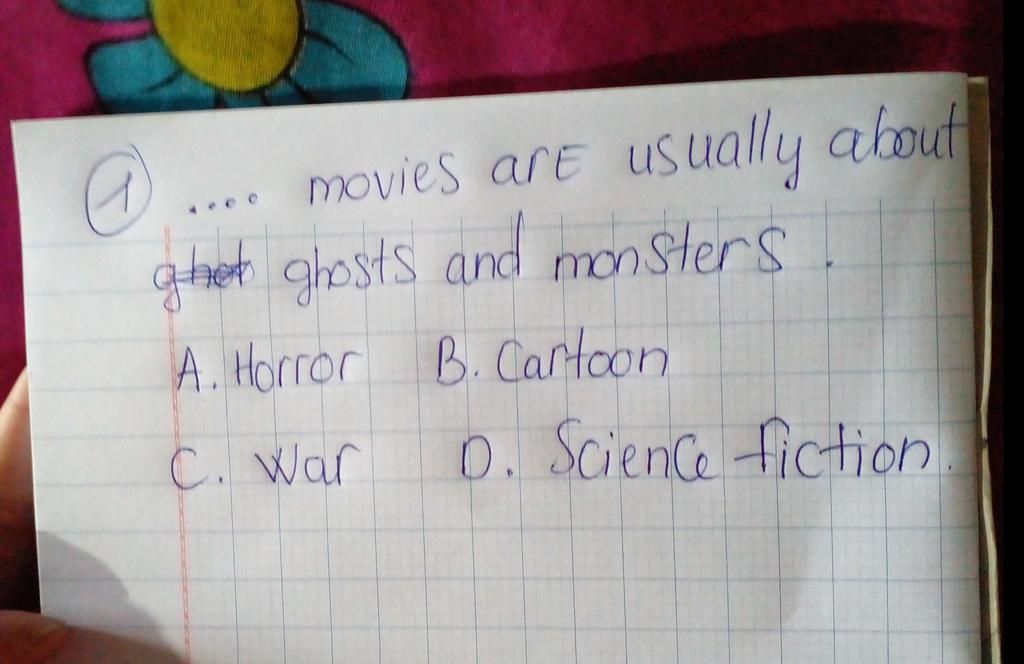 1 .... movies are usually about
ghosts and monsters.
A. Horror B. Cartoon
C. War D. Science fiction.